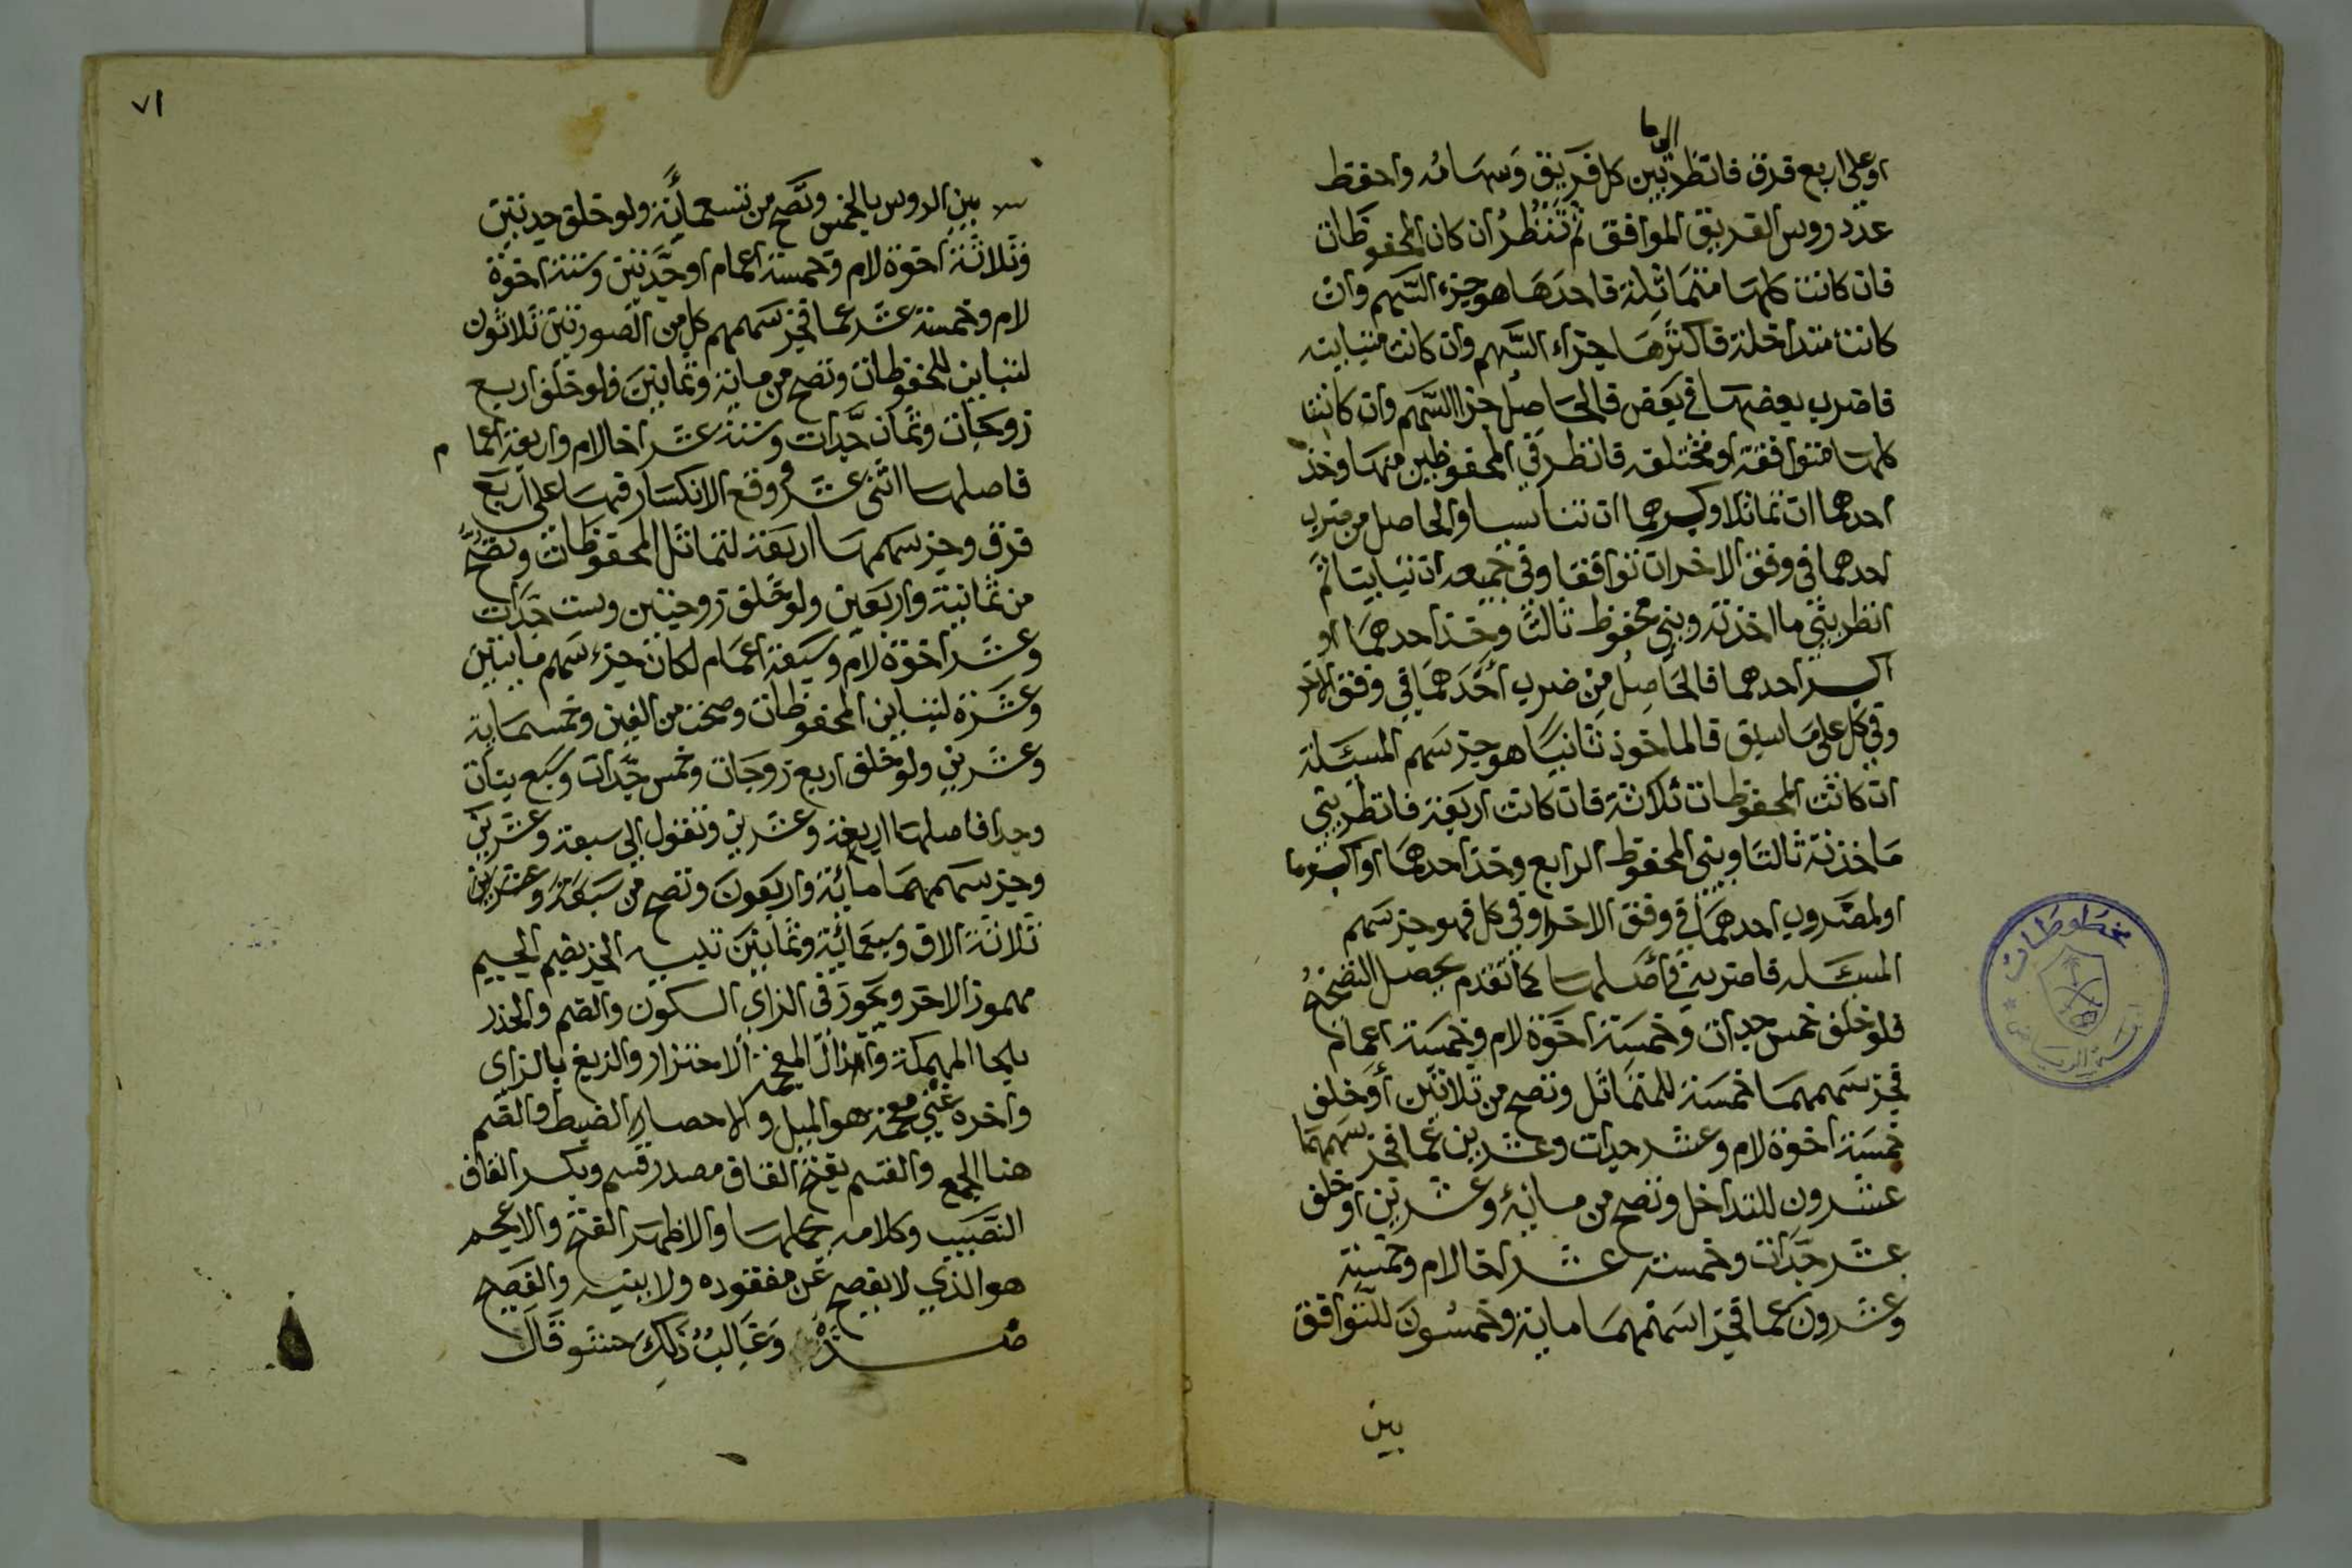 اولا
او على اربع فرق فانظر بين كل فريق وسهامه واحفظ
عدد روس الفريق الموافق ثم تنظر ان كان المحفوظات
فان كانت كلها متماثلة فاحدها هو جزء السهم وان
كانت متداخلة فاكثرها جزاء السهم وان كانت متباينه
فاضرب بعضها في بعض فالحاصل جزا السهم وان كانت
كلها متوافقة او مختلفه فانظر في المحفوظين منها وخذ
احدهما ان تماثلا واكبرهما ان تناسبا والحاصل من ضرب
احدهما في وفق الاخر ان توافقا وفي جميعه ان تباينا ثم
انظر بين ما اخذته وبين محفوظ ثالث وخذ احدهما او
اكبر احدهما فالحاصل من ضرب احدهما في وفق الاخر
وفي كل على ما سبق فالماخوذ ثانيا هو جز سهم المسئلة
ان كانت المحفوظات ثلاثة فان كانت اربعة فانظر بين
ما خذته ثالثا وبين المحفوظ الرابع وخذ احدهما او اكبرهما
او المضروب احدهما في وفق الاخر او في كل فهو جز سهم
المسئله فاضربه في اصلها كما تقدم يحصل التصحيح
فلو خلف خمس جدات وخمسة اخوة لام وخمسة اعمام
فجز سهمهما خمسة للمتماثل وتصح من ثلاثين او خلف
خمسة اخوة لام وعشر جدات وعشرين عما فجز سهمهما
عشرون للتداخل وتصح من مائة وعشرين او خلف
عشر جدات وخمسة عشر اخا لام وخمسة
وعشرون عما فجز اسهمهما ماية وخمسون للتوافق
بين
٧١
بين الروس بالخمس وتصح من تسعمائة ولو خلف جدتين
وثلاثة اخوة لام وخمسة اعمام او جدتين وستة اخوة
لام وخمسة عشر عما فجز سهمهم كل من الصورتين ثلاثون
لتباين المحفوظات وتصح من ماية وثمانين فلو خلف اربع
زوجات وثمان جدات وستة عشر اخا لام واربعة اعما م
فاصلها اثنى عشر وقع الانكسار فيها على اربع
فرق وجز سهمها اربعة لتماثل المحفوظات وتصح
من ثمانية واربعين ولو خلف زوجتين وست جدات
وعشر اخوة لام وسبعة اعمام لكان جزء سهم مايتين
وعشرة لتباين المحفوظات وصحت من الفين وخمسماية
وعشرين ولو خلف اربع زوجات وخمس جدات وسبع بنات
وجدا فاصلها اربعة وعشرين وتعول الى سبعة وعشرين
وجز سهمهما مائة واربعون وتصح من سبعة وعشرين
ثلاثة الاف وسبعمائة وثمانين تنبيه الجز بضم الجيم
مهموز الاخر ويجوز في الزاي السكون والضم والحذر
بالحا المهملة والذال المعجمه الاحتزار والزيغ بالزاى
واخره غين معجمة هو الميل والاحصار الضبط والضم
هنا الجمع والقسم بفتح القاف مصدر قسم وبكسر القاف
النصيب وكلامه يحتملها والاظهر الفتح والاعجم
هو الذي لا يفصح عن مقصوده ولا يبينه والفصيح
ضده وغالب ذلك حشو قال